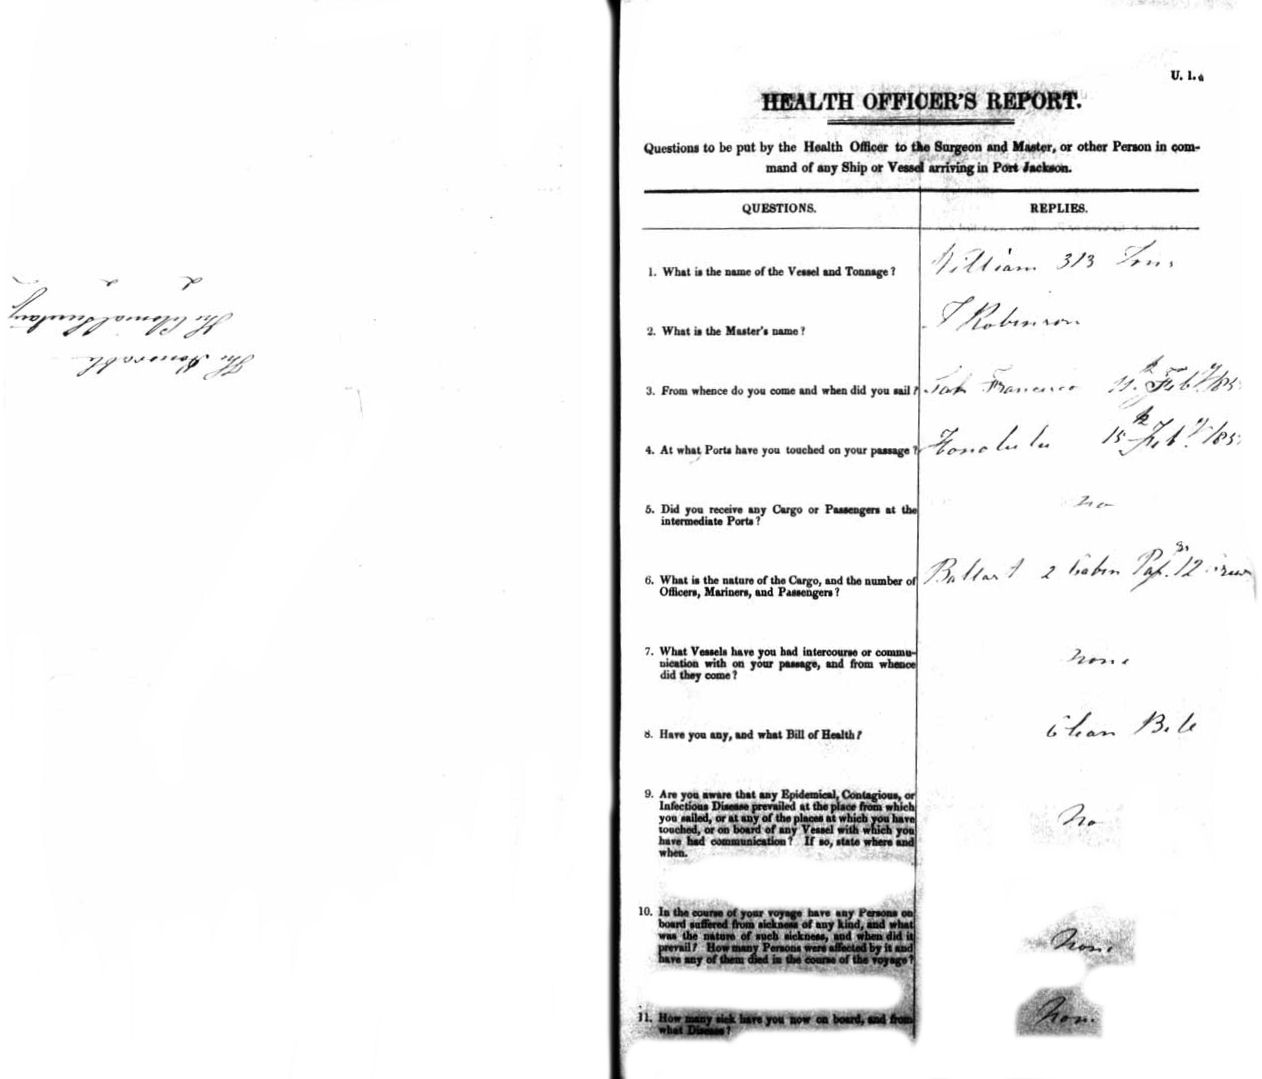 The Honorable
The Colonial Secretary
U. 1.
HEALTH OFFICER'S REPORT.
Questions to be put by the Health Officer to the Surgeon and Master, or other Person in com-
mand of any Ship or Vessel arriving in Port Jackson.
QUESTIONS. REPLIES.
1. What is the name of the Vessel and Tonnage? William 313 Tons
2. What is the Master's name? T Robinson
3. From whence do you come and when did you sail? San Francisco Feby
4. At what Ports have you touched on your passage? Honolulu 15 Feby 185
5. Did you receive any Cargo or Passengers at the
intermediate Ports? no
6. What is the nature of the Cargo, and the number of
Officers, Mariners, and Passengers? Ballast 2 Cabin Pas.grs 12 Crew
7. What Vessels have you had intercourse or commu-
nication with on your passage, and from whence
did they come? none
8. Have you any, and what Bill of Health? Clean Bill
9. Are you aware that any Epidemical, Contagious, or
Infectious Disease prevailed at the place from which
you sailed, or at any of the places at which you have
touched, or on board of any Vessel with which you
have had communication? If so, state where and
when. No
10. In the course of your voyage have any Persons on
board suffered from sickness of any kind, and what
was the nature of such sickness, and when did it
prevail? How many Persons were affected by it and
have any of them died in the course of the voyage? None
11. How many sick have you now on board, and from
what Disease? None